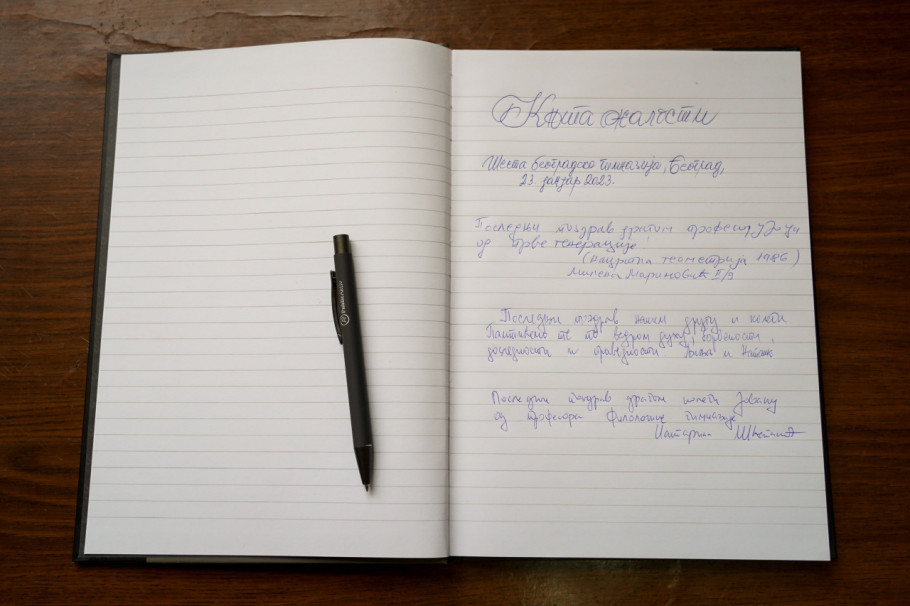 Књига жалости
Шеста београдска гимназија, Београд,
23. јануар 2023.
Последњи поздрав драгом професору
од прве генерације!
(Нацртна геометрија 1986)
Милена Маринковић II/9
Последњи поздрав нашем другу и колеги
Памтићемо те по ведром духу, борбености,
доследности и праведности и Наташа
Последњи поздрав драгом колеги Јовану
од професора Филолошке гимназије